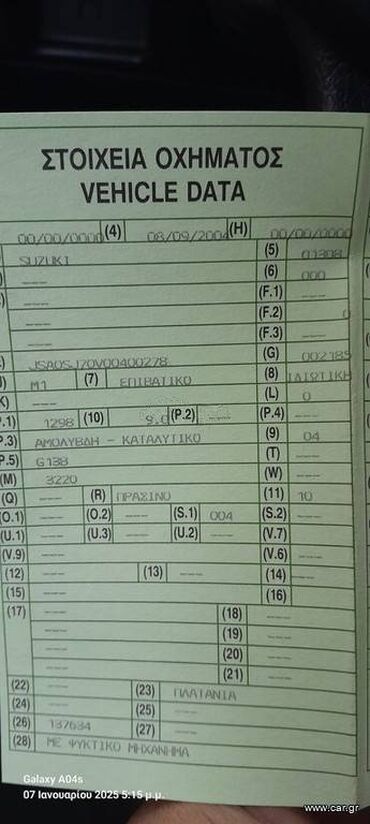 ΣΤΟΙΧΕΙΑ ΟΧΗΜΑΤΟΣ
VEHICLE DATA
00/00/0000 (4) 08/09/2004 (H) 00/00/0000
SUZUKI (5) 01308
(6) 000
(F.1) ---
(F.2) 0
(F.3) ---
(G) 002185
JSAOSJ70V00400278
M1 (7) ΕΠΙΒΑΤΙΚΟ (8) ΙΔΙΩΤΙΚΗ
(L) 0
P.1) 1298 (10) 9.0 (P.2) --- (P.4) ---
P.3) ΑΜΟΛΥΒΔΗ - ΚΑΤΑΛΥΤΙΚΟ (9) 04
P.5) G13B (T) ---
(M) 3220 (W) ---
(Q) --- (R) ΠΡΑΣΙΝΟ (11) 10
(O.1) --- (O.2) --- (S.1) 004 (S.2) ---
(U.1) --- (U.3) --- (U.2) --- (V.7) ---
(V.9) --- (V.6) ---
(12) --- (13) --- (14) ---
(15) --- (16) ---
(17) --- (18) ---
(19) ---
(20) ---
(21) ---
(22) --- (23) ΠΛΑΤΑΝΙΑ
(24) --- (25) ---
(26) 137634 (27) ---
(28) ΜΕ ΨΥΚΤΙΚΟ ΜΗΧΑΝΗΜΑ
Galaxy A04s
07 Ιανουαρίου 2025 5:15 μ.μ.
www.car.gr